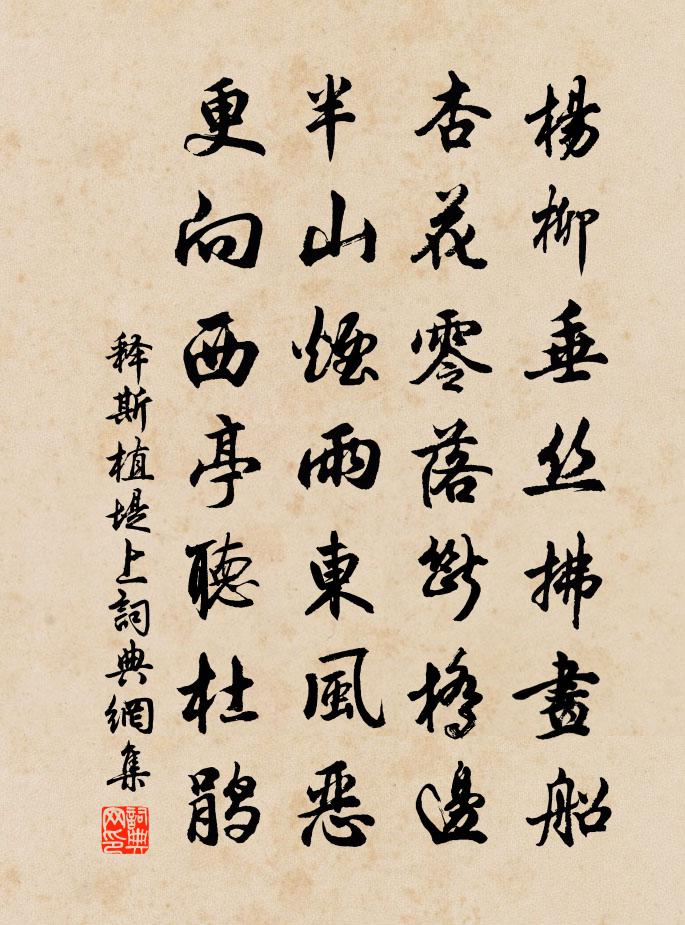 楊柳垂丝拂畫船
杏花零落斷橋邊
半山煙雨東風惡
更向西亭聽杜鵑
释斯植堤上詞典網集
詞典网印